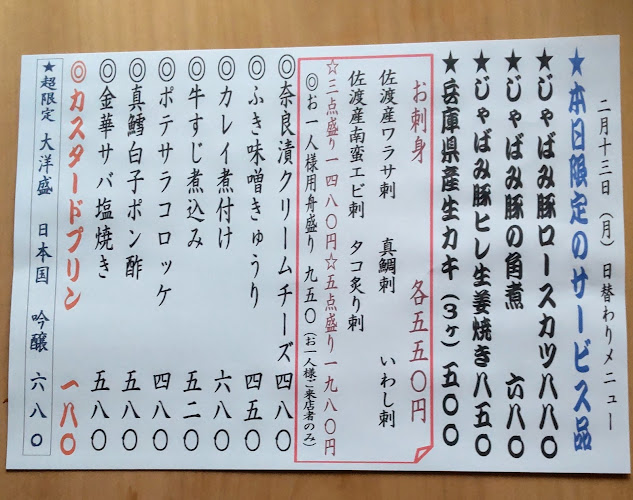 二月十三日（月）日替わりメニュー
★本日限定のサービス品
★じゃばみ豚ロースカツ八八〇
★じゃばみ豚の角煮 六八〇
★じゃばみ豚ヒレ生姜焼き八五〇
★兵庫県産生カキ（３ヶ）五〇〇
お刺身 各五五〇円
佐渡産ワラサ刺 真鯛刺 いわし刺
佐渡産南蛮エビ刺 タコ炙り刺
☆三点盛り一四八〇円☆五点盛り一九八〇円
◎お一人様用舟盛り 九五〇（お一人様ご来店者のみ）
◎奈良漬クリームチーズ四八〇
◎ふき味噌きゅうり 四五〇
◎カレイ煮付け 六八〇
◎牛すじ煮込み 五二〇
◎ポテサラコロッケ 四八〇
◎真鱈白子ポン酢 五八〇
◎金華サバ塩焼き 五八〇
◎カスタードプリン 一八〇
★超限定 大洋盛 日本国 吟醸 六八〇